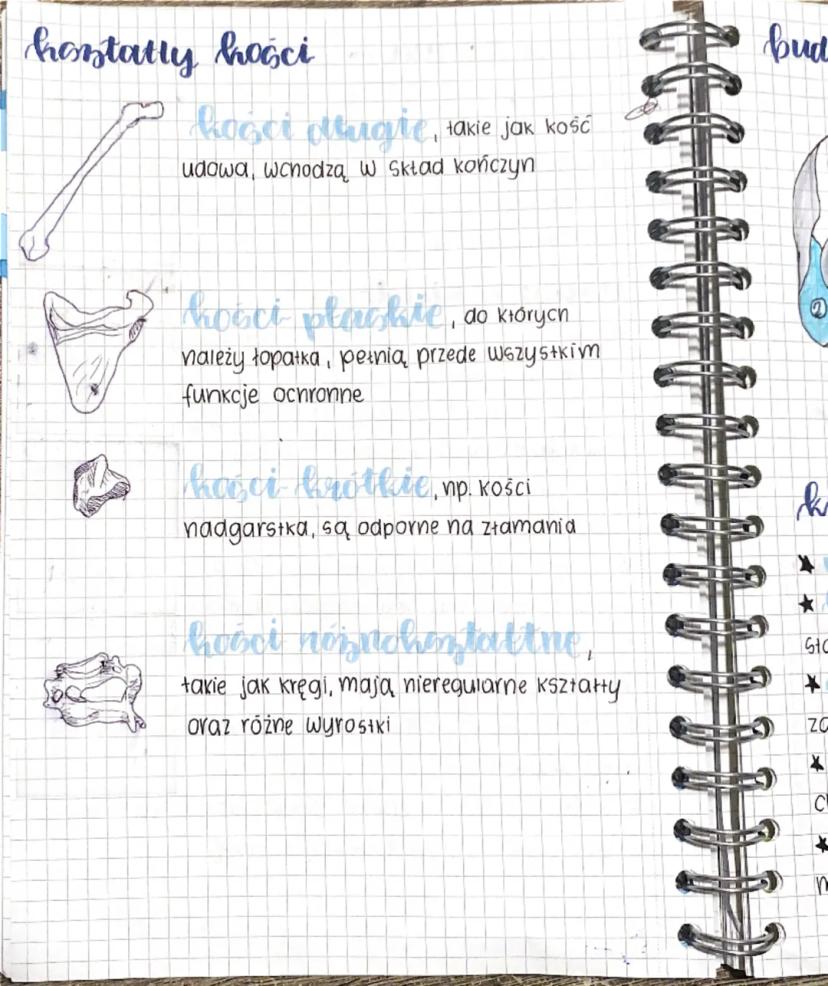 kształty kości
kości długie, takie jak kość
udowa, wchodzą w skład kończyn
kości płaskie, do których
należy łopatka, pełnią przede wszystkim
funkcje ochronne
kości krótkie, np. kości
nadgarstka, są odporne na złamania
kości różnokształtne,
takie jak kręgi, mają nieregularne kształty
oraz różne wyrostki
bud
2